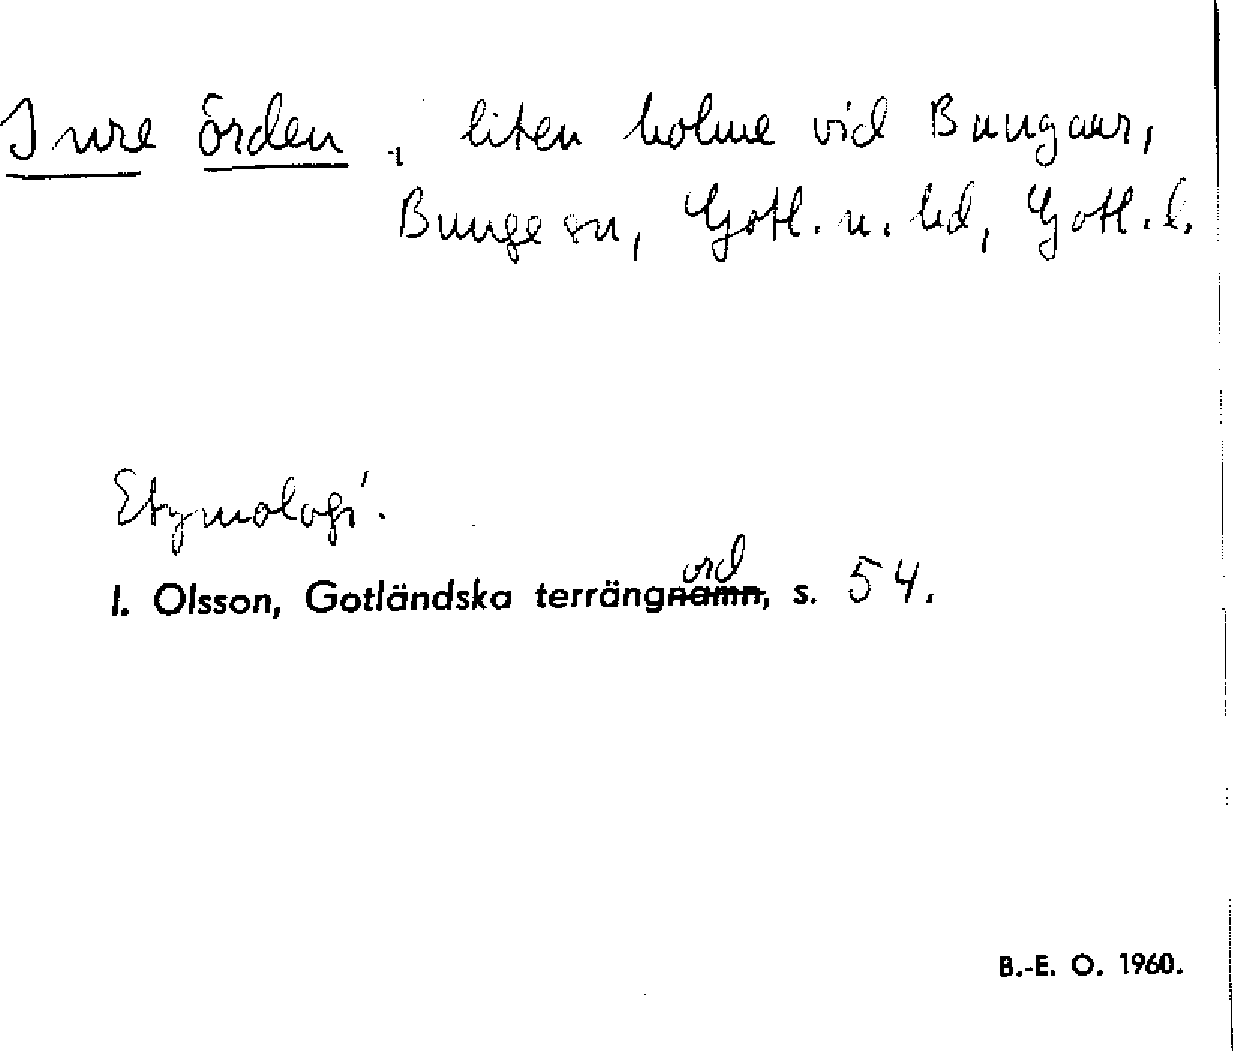 Inre örden, liten holme vid Bungaur,
Bunge sn, Gotl. n. hd, Gotl. l.
Etymologi.
ord
I. Olsson, Gotländska terrängnamn, s. 54.
B.-E. O. 1960.